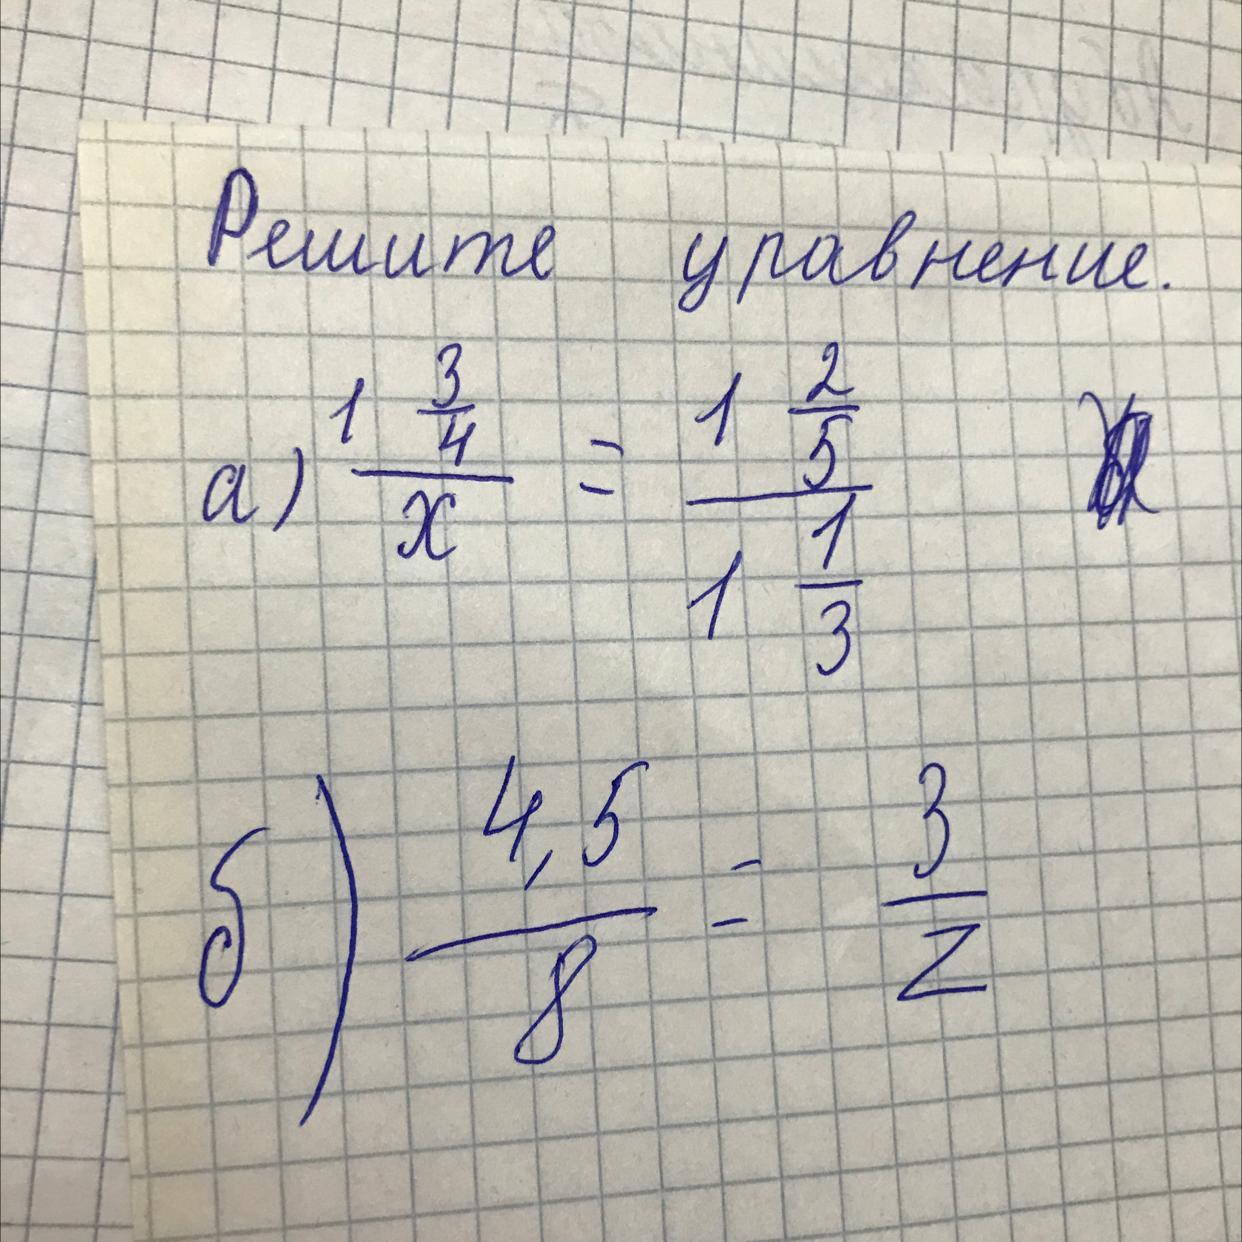 Решите уравнение.
а) 1 3/4 / x = 1 2/5 / 1 1/3
б) 4,5 / 8 = 3 / z